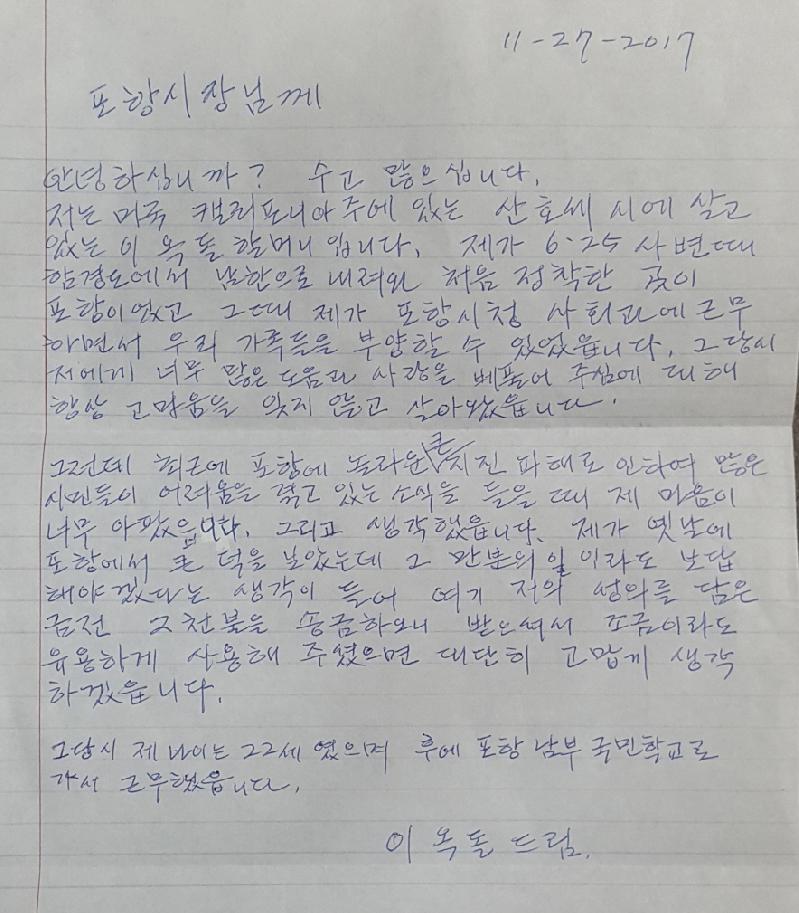 11-27-2017
포항시장님께
안녕하십니까? 수고 많으십니다.
저는 미국 캘리포니아주에 있는 산호세 시에 살고
있는 이옥돌 할머니입니다. 제가 6·25 사변때
함경도에서 남한으로 내려와 처음 정착한 곳이
포항이었고 그때 제가 포항시청 사회과에 근무
하면서 우리 가족들을 부양할 수 있었읍니다. 그당시
저에게 너무 많은 도움과 사랑을 베풀어 주심에 대해
항상 고마움을 잊지 않고 살아왔읍니다.
그런데 최근에 포항에 놀라운 큰 지진 피해로 인하여 많은
시민들이 어려움을 겪고 있는 소식을 들을 때 제 마음이
너무 아팠읍니다. 그리고 생각했읍니다. 제가 옛날에
포항에서 큰 덕을 보았는데 그 만분의 일이라도 보답
해야겠다는 생각이 들어 여기 저의 성의를 담은
금전 2천불을 송금하오니 받으셔서 조금이라도
유용하게 사용해 주셨으면 대단히 고맙게 생각
하겠읍니다.
그당시 제 나이는 22세 였으며 후에 포항 남부 국민학교로
가서 근무했읍니다.
이옥돌 드림.